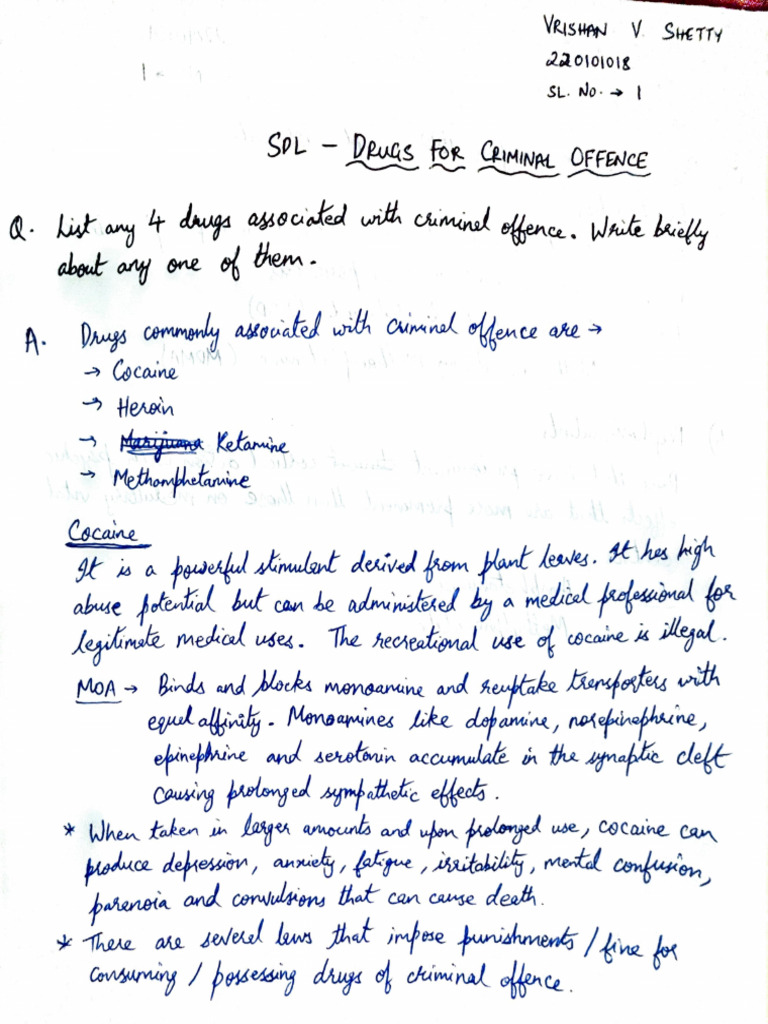 VRISHAN V. SHETTY
220101018
SL. No. → 1
SDL – DRUGS FOR CRIMINAL OFFENCE
Q. List any 4 drugs associated with criminal offence. Write briefly
about any one of them.
A. Drugs commonly associated with criminal offence are →
→ Cocaine
→ Heroin
→ Marijuana Ketamine
→ Methamphetamine
Cocaine
It is a powerful stimulent derived from plant leaves. It has high
abuse potential but can be administered by a medical professional for
legitimate medical uses. The recreational use of cocaine is illegal.
MOA → Binds and blocks monoamine and reuptake transporters with
equal affinity. Monoamines like dopamine, norepinephrine,
epinephrine and serotonin accumulate in the synaptic cleft
causing prolonged sympathetic effects.
* When taken in larger amounts and upon prolonged use, cocaine can
produce depression, anxiety, fatigue, irritability, mental confusion,
paranoia and convulsions that can cause death.
* There are several laws that impose punishments / fine for
consuming / possessing drugs of criminal offence.